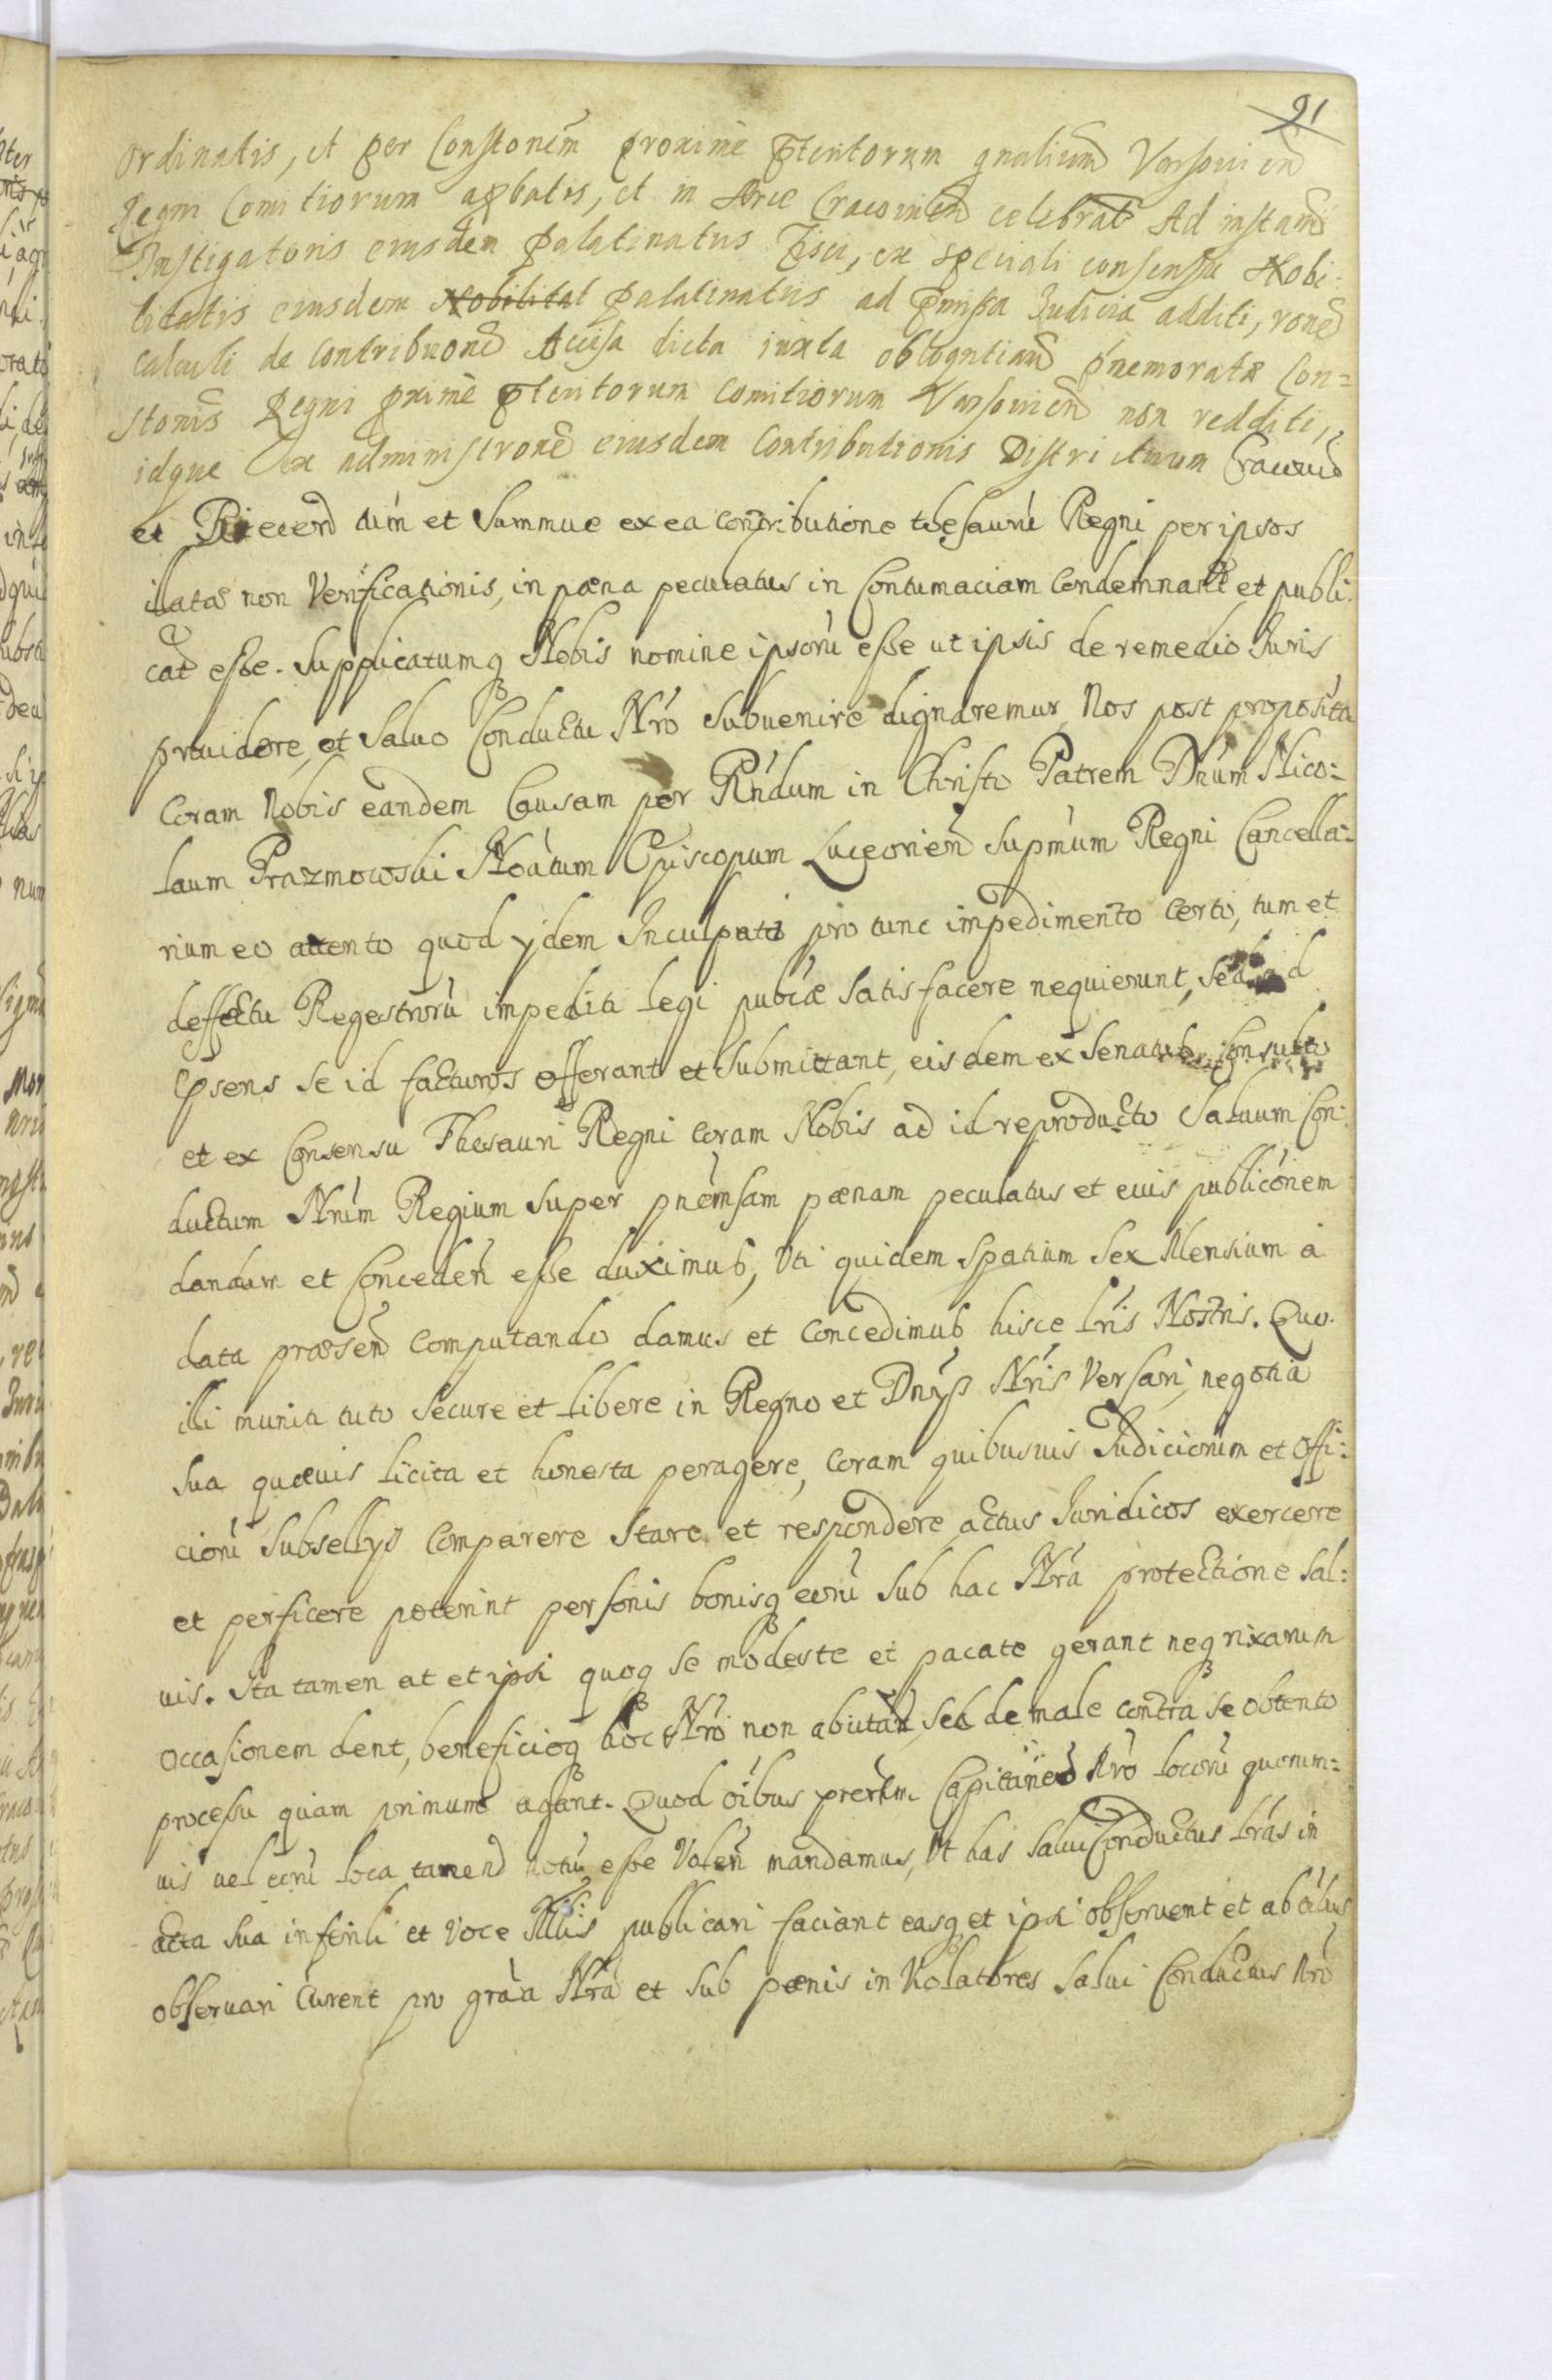 91
Ordinatis, et per Constonem proxime ptentorum gnalium Varsovien
Regni Comitiorum apbatis, et in Arce Cracovien celebrat Ad instam
Instigatoris eiusdem Palatinatus Fisci, ex speciali consensu Nobi:
litatis eiusdem Nobilitat Palatinatus ad pmissa Judicia additi, rone
calculi de Contribuone Accisa dicta iuxta obloqntiam pnemoratæ Con=
stonis Regni pxime ptentorum Comitiorum Varsovien non redditi,
idque ex administrone eiusdem Contributionis Districtuum Cracovien
et tum et Summæ ex ea contributione thesauru Regni per ipsos
illatæ non Verificationis, in pæna peculatus in Contumaciam Condemnat et publi:
cat esse. Supplicatumq Nobis nomine ipsoru esse ut ipsis de remedio Iuris
prouidere, et Saluo Conductu Nro Subuenire dignaremur. Nos post proposita
Coram Nobis eandem Causam per Rndum in Christo Patrem Dnum Nico:
laum Prazmowski Noatum Episcopum Luceorien Supmum Regni Cancella:
rium eo attento quod ydem Inculpati pro tunc impedimento certo, tum et
deffectu Regestroru impediti legi publcæ Satisfacere nequierunt, Sed ad
psens se id facturos offerant et Submittant, eisdem ex Senatus Consulto
et ex Consensu Thesauri Regni Coram Nobis ad id reproducto Saluum Con:
ductum Nrum Regium Super pnemsam pænam peculatus et eius publiconem
dandum et Conceden esse duximus, Vti quidem Spatium Sex Mensium a
data præsen Computando damus et Concedimus hisce Lris Nostris. Quo
illi muniti tuto Secure et libere in Regno et Dnys Nris Versari, negotia
Sua quæuis licita et honesta peragere, Coram quibusuis Judiciorum et Offi:
cioru Subsellys Comparere Stare et respondere actus Iuridicos exercere
et perficere poterint personis bonisq eoru Sub hac Nra protectione Sal:
uis. Ita tamen ut et ipsi quoq se modeste et pacate gerant neq rixarum
occasionem dent, beneficioq hoc Nro non abutan, Sed de male contra se obtento
processu quam primum agant. Quod oibus prertim Capitaneo Nro locoru quorum=
uis uel eoru loca tenen notu esse Volen mandamus, Vt has Salui Conductus Lras in
acta Sua inseri et Voce publicari faciant easq et ipsi obseruent et ab oibus
obseruari Curent pro graa Nra et Sub pænis in Violatores Salui Conductus Nri